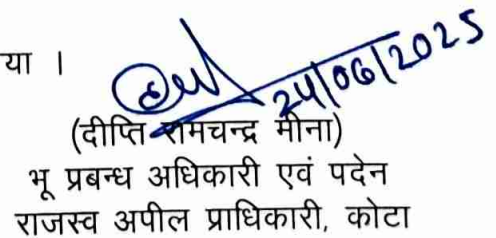 या ।
24/06/2025
(दीप्ति रामचन्द्र मीना)
भू प्रबन्ध अधिकारी एवं पदेन
राजस्व अपील प्राधिकारी, कोटा